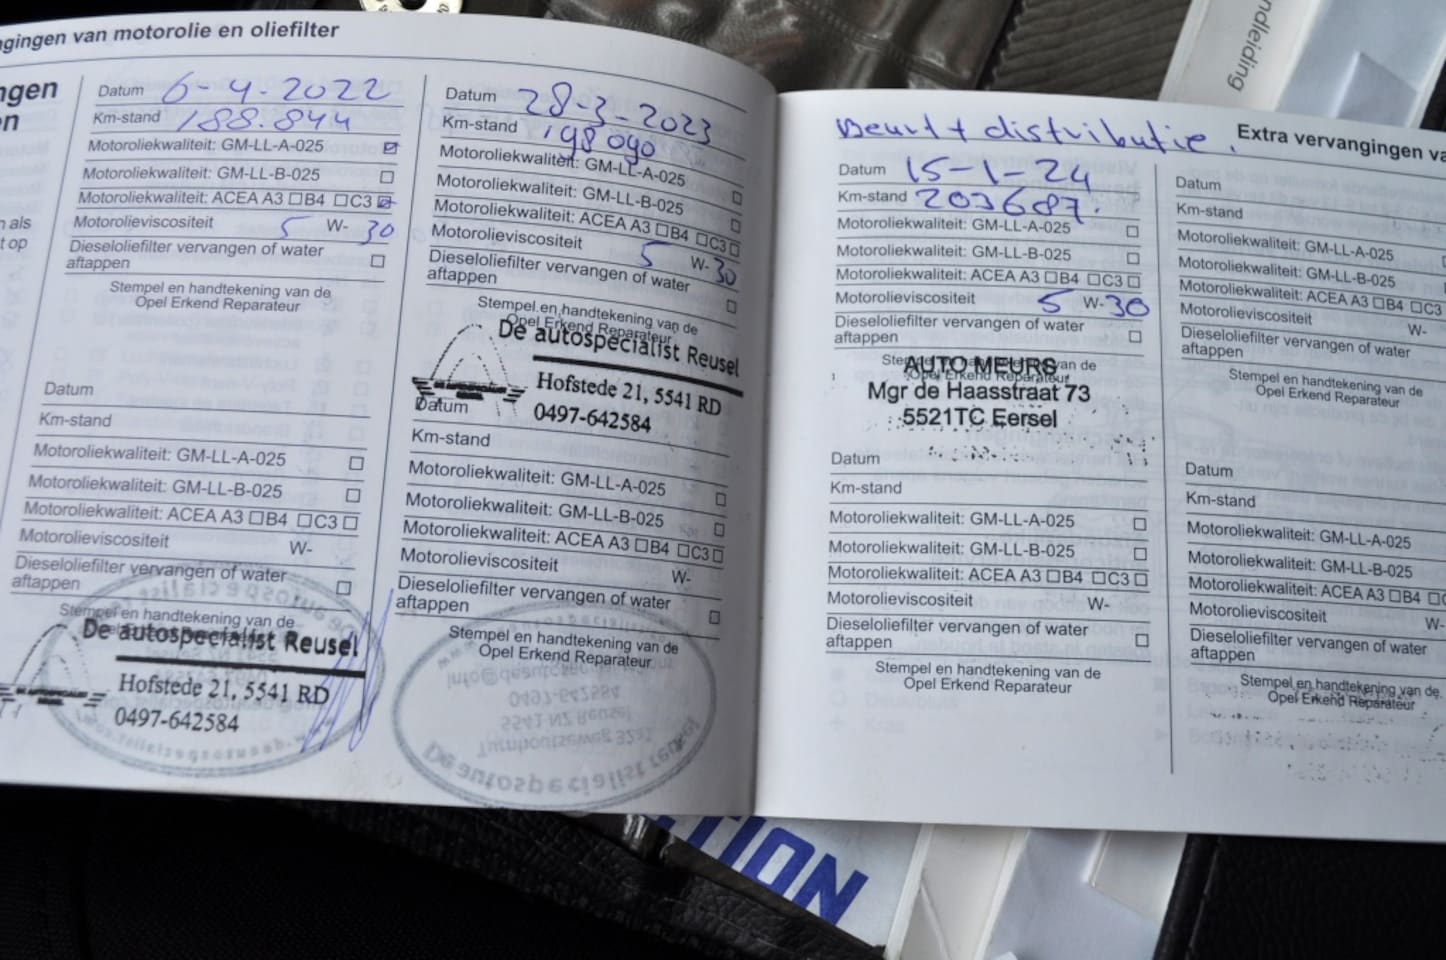 gingen van motorolie en oliefilter
ngen
en
als
t op
Datum 6-4-2022
Km-stand 188.844
Motoroliekwaliteit: GM-LL-A-025 ☑
Motoroliekwaliteit: GM-LL-B-025 ☐
Motoroliekwaliteit: ACEA A3 ☐B4 ☐C3 ☑
Motorolieviscositeit 5 W-30
Dieseloliefilter vervangen of water
aftappen ☐
Stempel en handtekening van de
Opel Erkend Reparateur
Datum
Km-stand
Motoroliekwaliteit: GM-LL-A-025 ☐
Motoroliekwaliteit: GM-LL-B-025 ☐
Motoroliekwaliteit: ACEA A3 ☐B4 ☐C3 ☐
Motorolieviscositeit W-
Dieseloliefilter vervangen of water
aftappen ☐
Stempel en handtekening van de
Opel Erkend Reparateur
De autospecialist Reusel
Hofstede 21, 5541 RD
0497-642584
Datum 28-3-2023
Km-stand 198090
Motoroliekwaliteit: GM-LL-A-025 ☐
Motoroliekwaliteit: GM-LL-B-025 ☐
Motoroliekwaliteit: ACEA A3 ☐B4 ☐C3 ☐
Motorolieviscositeit 5 W-30
Dieseloliefilter vervangen of water
aftappen ☐
Stempel en handtekening van de
Opel Erkend Reparateur
De autospecialist Reusel
Hofstede 21, 5541 RD
0497-642584
Datum
Km-stand
Motoroliekwaliteit: GM-LL-A-025 ☐
Motoroliekwaliteit: GM-LL-B-025 ☐
Motoroliekwaliteit: ACEA A3 ☐B4 ☐C3 ☐
Motorolieviscositeit W-
Dieseloliefilter vervangen of water
aftappen ☐
Stempel en handtekening van de
Opel Erkend Reparateur
info@deautospecialist
0497-642584
5541 NZ Reusel
Turnhoutseweg 32a
De autospecialist reusel
Beurt + distributie.
Extra vervangingen va
Datum 15-1-24
Km-stand 203687.
Motoroliekwaliteit: GM-LL-A-025 ☐
Motoroliekwaliteit: GM-LL-B-025 ☐
Motoroliekwaliteit: ACEA A3 ☐B4 ☐C3 ☐
Motorolieviscositeit 5 W-30
Dieseloliefilter vervangen of water
aftappen ☐
Stempel en handtekening van de
Opel Erkend Reparateur
AUTO MEURS
Mgr de Haasstraat 73
5521TC Eersel
Datum
Km-stand
Motoroliekwaliteit: GM-LL-A-025 ☐
Motoroliekwaliteit: GM-LL-B-025 ☐
Motoroliekwaliteit: ACEA A3 ☐B4 ☐C3 ☐
Motorolieviscositeit W-
Dieseloliefilter vervangen of water
aftappen ☐
Stempel en handtekening van de
Opel Erkend Reparateur
Datum
Km-stand
Motoroliekwaliteit: GM-LL-A-025
Motoroliekwaliteit: GM-LL-B-025
Motoroliekwaliteit: ACEA A3 ☐B4 ☐C3
Motorolieviscositeit W-
Dieseloliefilter vervangen of water
aftappen
Stempel en handtekening van de
Opel Erkend Reparateur
Datum
Km-stand
Motoroliekwaliteit: GM-LL-A-025
Motoroliekwaliteit: GM-LL-B-025
Motoroliekwaliteit: ACEA A3 ☐B4 ☐C
Motorolieviscositeit W-
Dieseloliefilter vervangen of water
aftappen
Stempel en handtekening van de
Opel Erkend Reparateur
ndleiding
TION